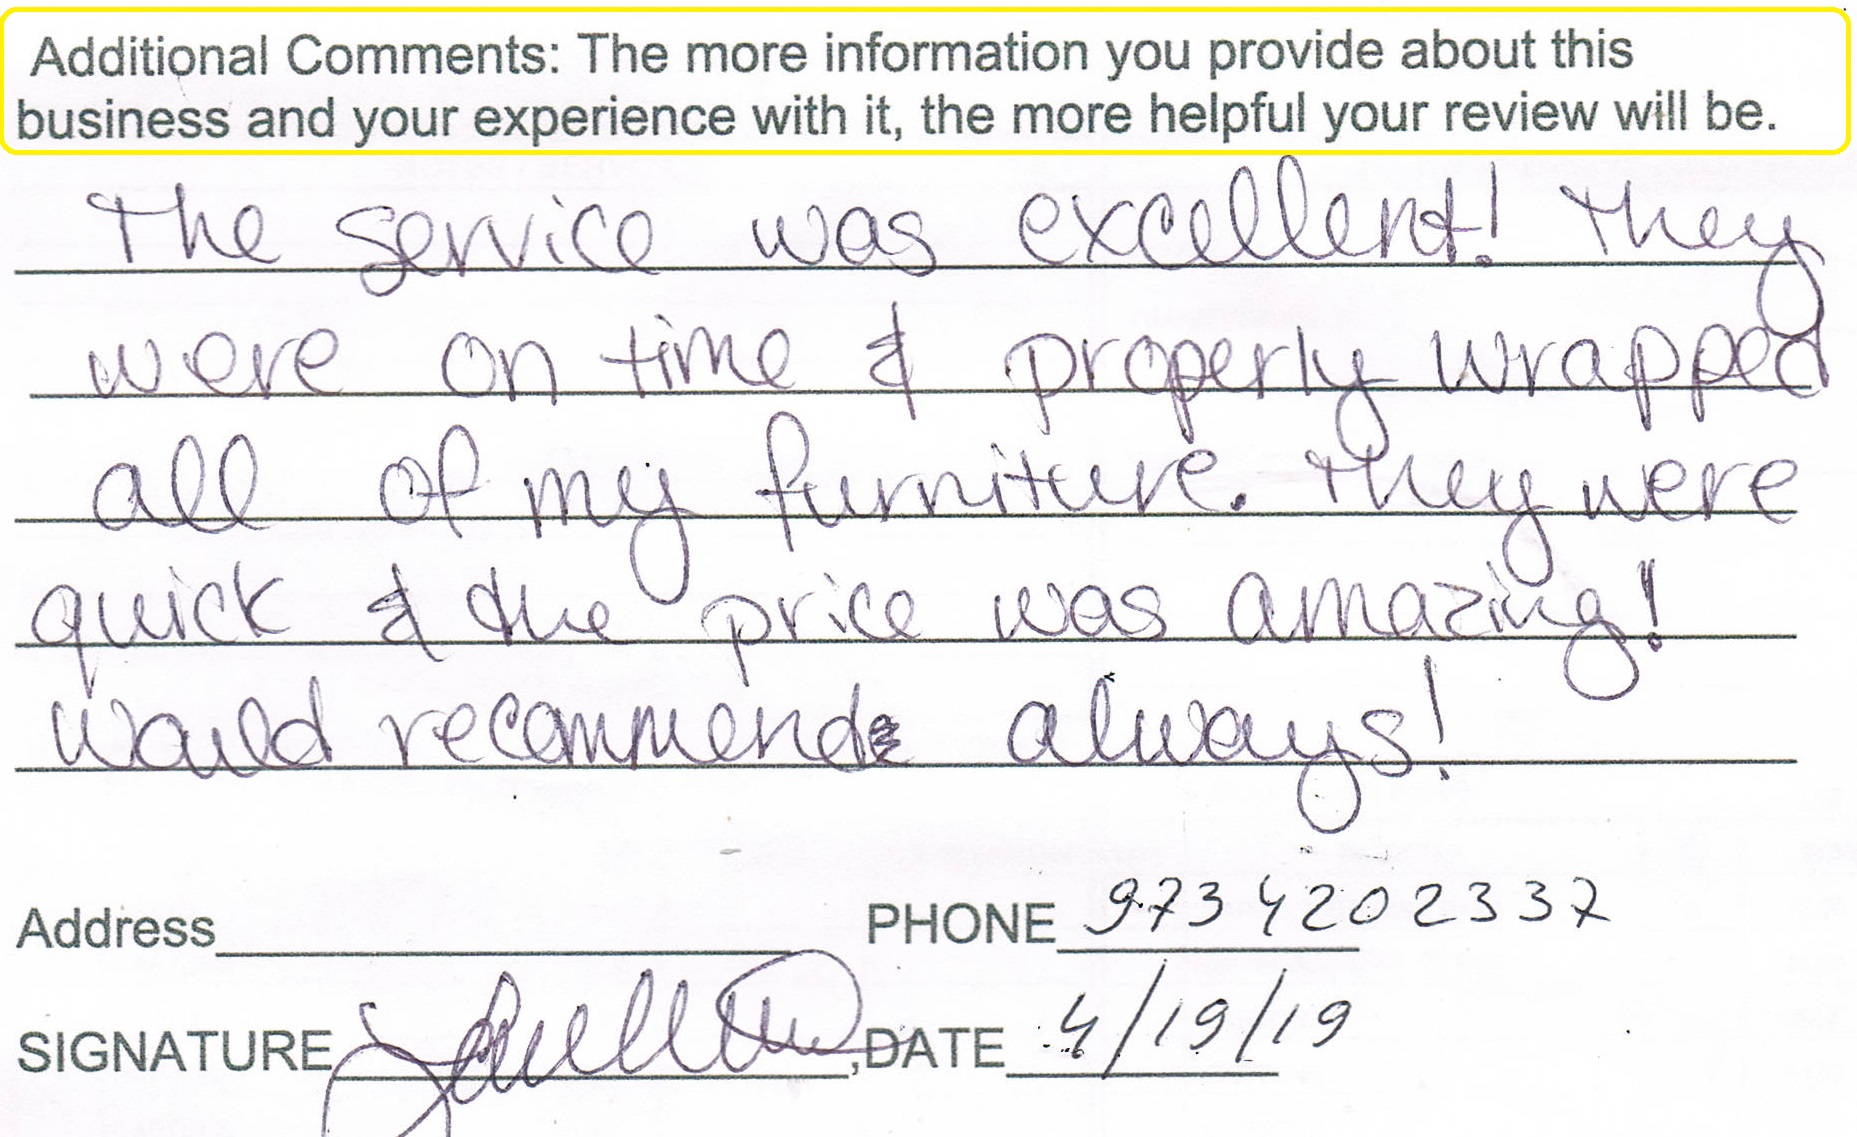 Additional Comments: The more information you provide about this
business and your experience with it, the more helpful your review will be.
The service was excellent! They
were on time & properly wrapped
all of my furniture. They were
quick & the price was amazing!
Would recommend always!
Address PHONE 9734202337
SIGNATURE ,DATE 4/19/19